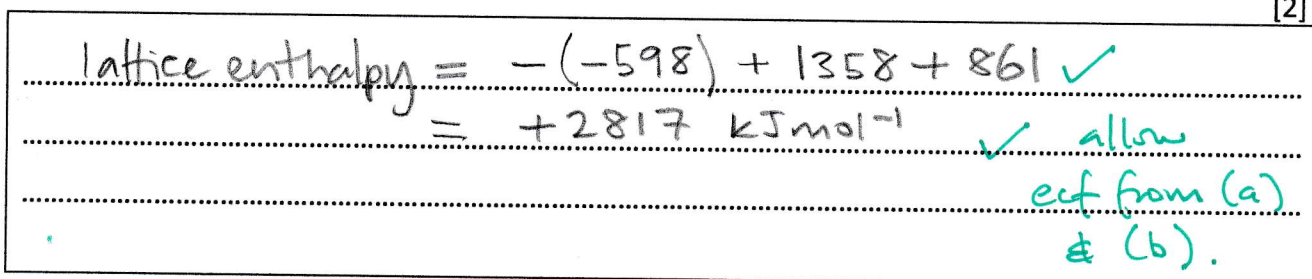 [2]
lattice enthalpy = -(-598) + 1358 + 861 ✓
= +2817 kJmol⁻¹ ✓ allow
ecf from (a)
& (b).